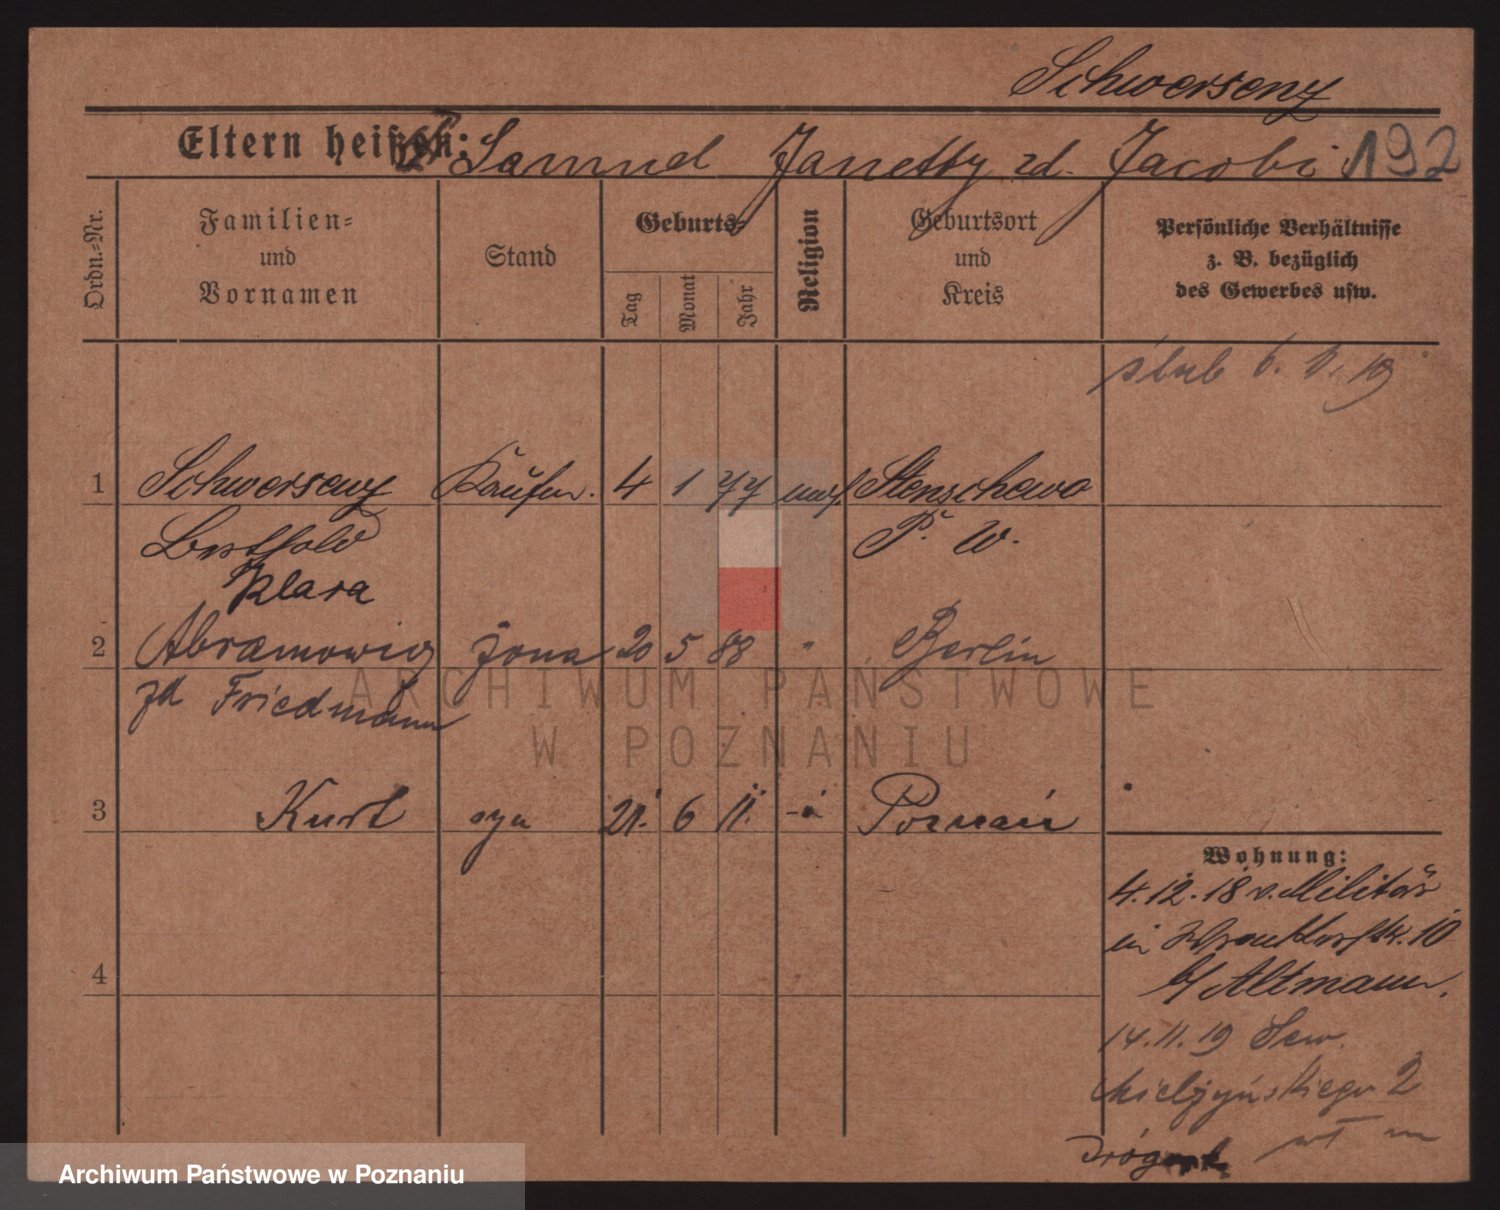 Schwersenz
Eltern heißen: Samuel Janetty zd. Jacobi 192
Ordn.-Nr.
Familien-
und
Vornamen
Stand
Geburts-
Tag
Monat
Jahr
Religion
Geburtsort
und
Kreis
Persönliche Verhältnisse
z. B. bezüglich
des Gewerbes usw.
slub 6. 19
1 Schwersenz Kaufm. 4 1 77 mos. Stenschewo
Berthold P. W.
Klara
2 Abramowicz żona 20 5 88 " Berlin
zd Friedmann
3 Kurt syn 21. 6 11. Poznań
4
Wohnung:
4.12.18 v. Militär
in 10
b/ Altmann.
14.11.19 Sew.
Mielżyńskiego 2
ARCHIWUM PAŃSTWOWE
W POZNANIU
Archiwum Państwowe w Poznaniu